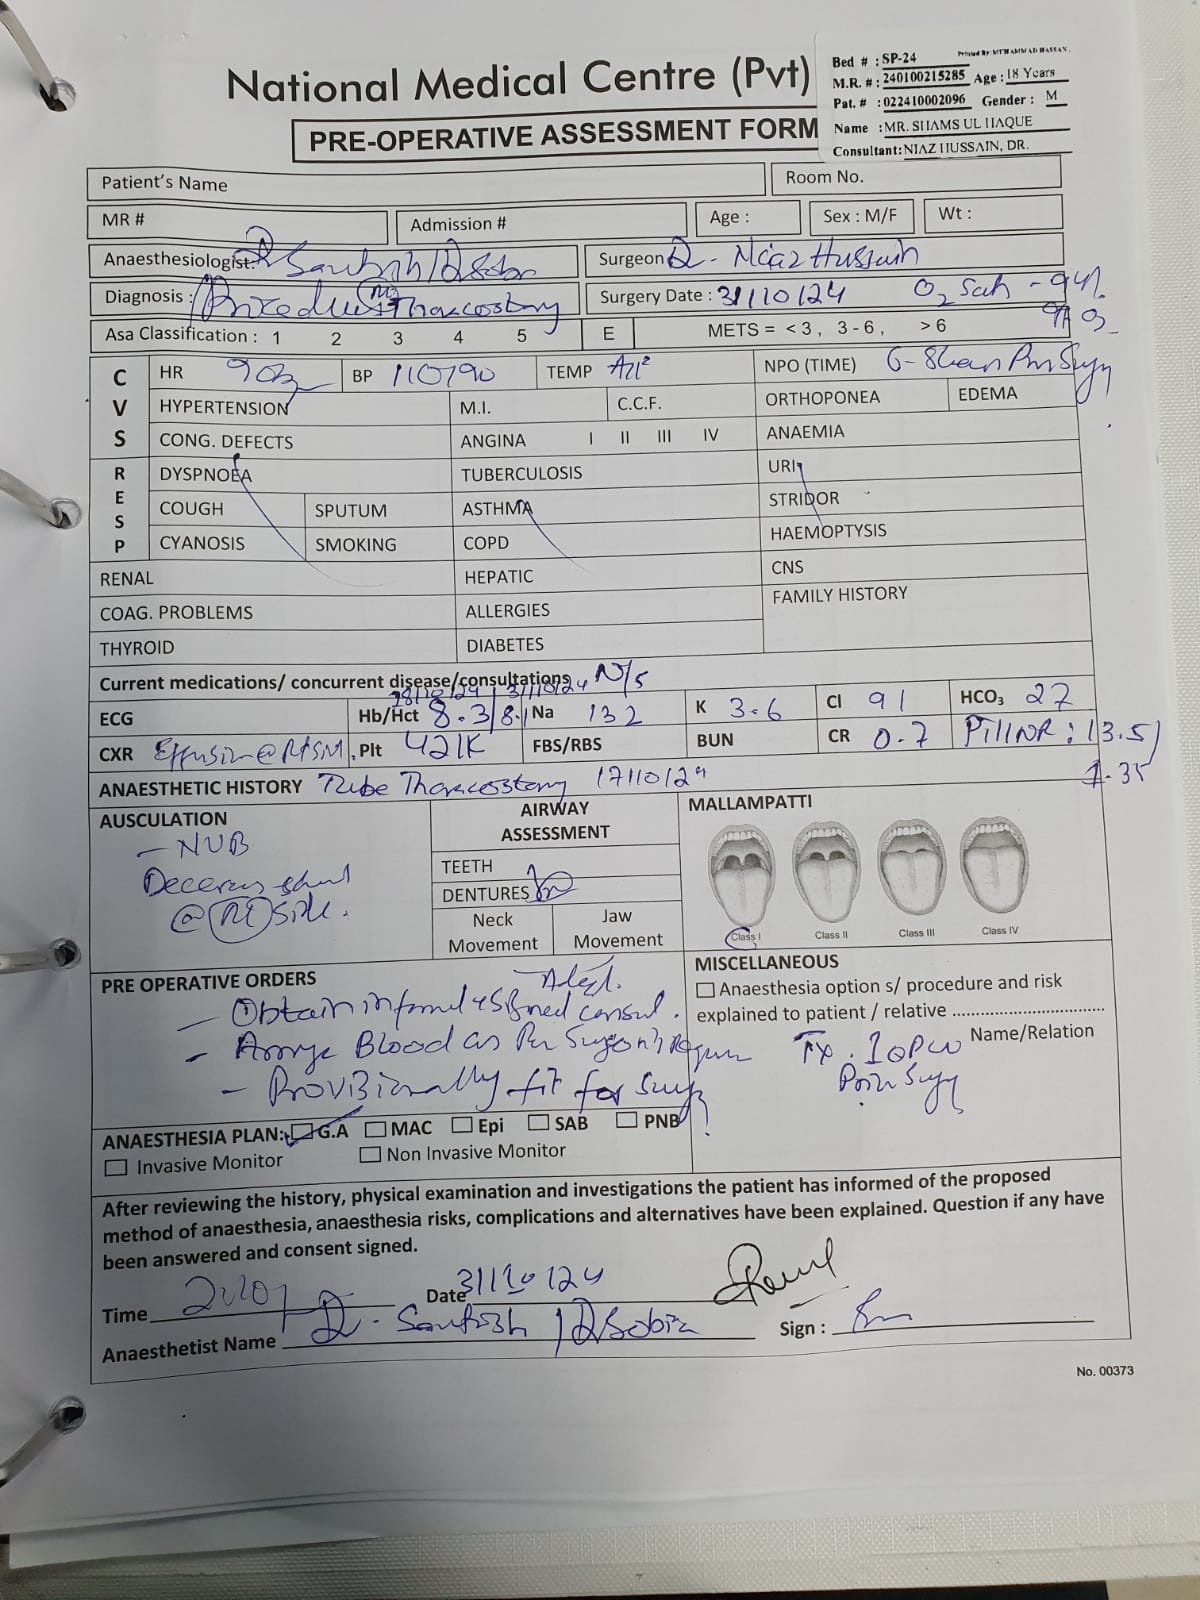 Printed By: MUHAMMAD HASSAN.
Bed # : SP-24
M.R. # : 240100215285 Age : 18 Years
Pat. # : 022410002096 Gender : M
Name : MR. SHAMS UL HAQUE
Consultant: NIAZ HUSSAIN, DR.
National Medical Centre (Pvt)
PRE-OPERATIVE ASSESSMENT FORM
Patient's Name
Room No.
MR # Admission # Age : Sex : M/F Wt :
Anaesthesiologist: Dr Santosh / Dr Sobia Surgeon Dr - Niaz Hussain
Diagnosis : Procedure (Rt) Thoracostomy Surgery Date : 31/10/24 O2 Sat - 94%
Asa Classification : 1 2 3 4 5 E METS = < 3 , 3 - 6 , > 6
C V S
HR 90 BP 110/90 TEMP NPO (TIME) 6-8
HYPERTENSION M.I. C.C.F. ORTHOPONEA EDEMA
CONG. DEFECTS ANGINA I II III IV ANAEMIA
R E S P
DYSPNOEA TUBERCULOSIS URI
COUGH SPUTUM ASTHMA STRIDOR
CYANOSIS SMOKING COPD HAEMOPTYSIS
RENAL HEPATIC CNS
COAG. PROBLEMS ALLERGIES FAMILY HISTORY
THYROID DIABETES
Current medications/ concurrent disease/consultations N/S
28/10/24 31/10/24
ECG Hb/Hct 8.3/8.1 Na 132 K 3.6 Cl 91 HCO3 27
CXR Effusion @ Rt Plt 421K FBS/RBS BUN CR 0.7 Pt/INR : 13.5/
1.35
ANAESTHETIC HISTORY Tube Thoracostomy 17/10/24
AUSCULATION
- NVB
@ (Rt) Side.
AIRWAY
ASSESSMENT
TEETH
DENTURES
Neck
Movement
Jaw
Movement
MALLAMPATTI
Class I Class II Class III Class IV
PRE OPERATIVE ORDERS
- Obtain informed & signed consent.
- Arrange Blood as Per Surgeon's
- Provisionally fit for
MISCELLANEOUS
Anaesthesia option s/ procedure and risk
explained to patient / relative
Name/Relation
ANAESTHESIA PLAN: G.A MAC Epi SAB PNB
Invasive Monitor Non Invasive Monitor
After reviewing the history, physical examination and investigations the patient has informed of the proposed
method of anaesthesia, anaesthesia risks, complications and alternatives have been explained. Question if any have
been answered and consent signed.
Time Date 31/10/24
Anaesthetist Name Dr. Santosh / Dr Sobia Sign :
No. 00373